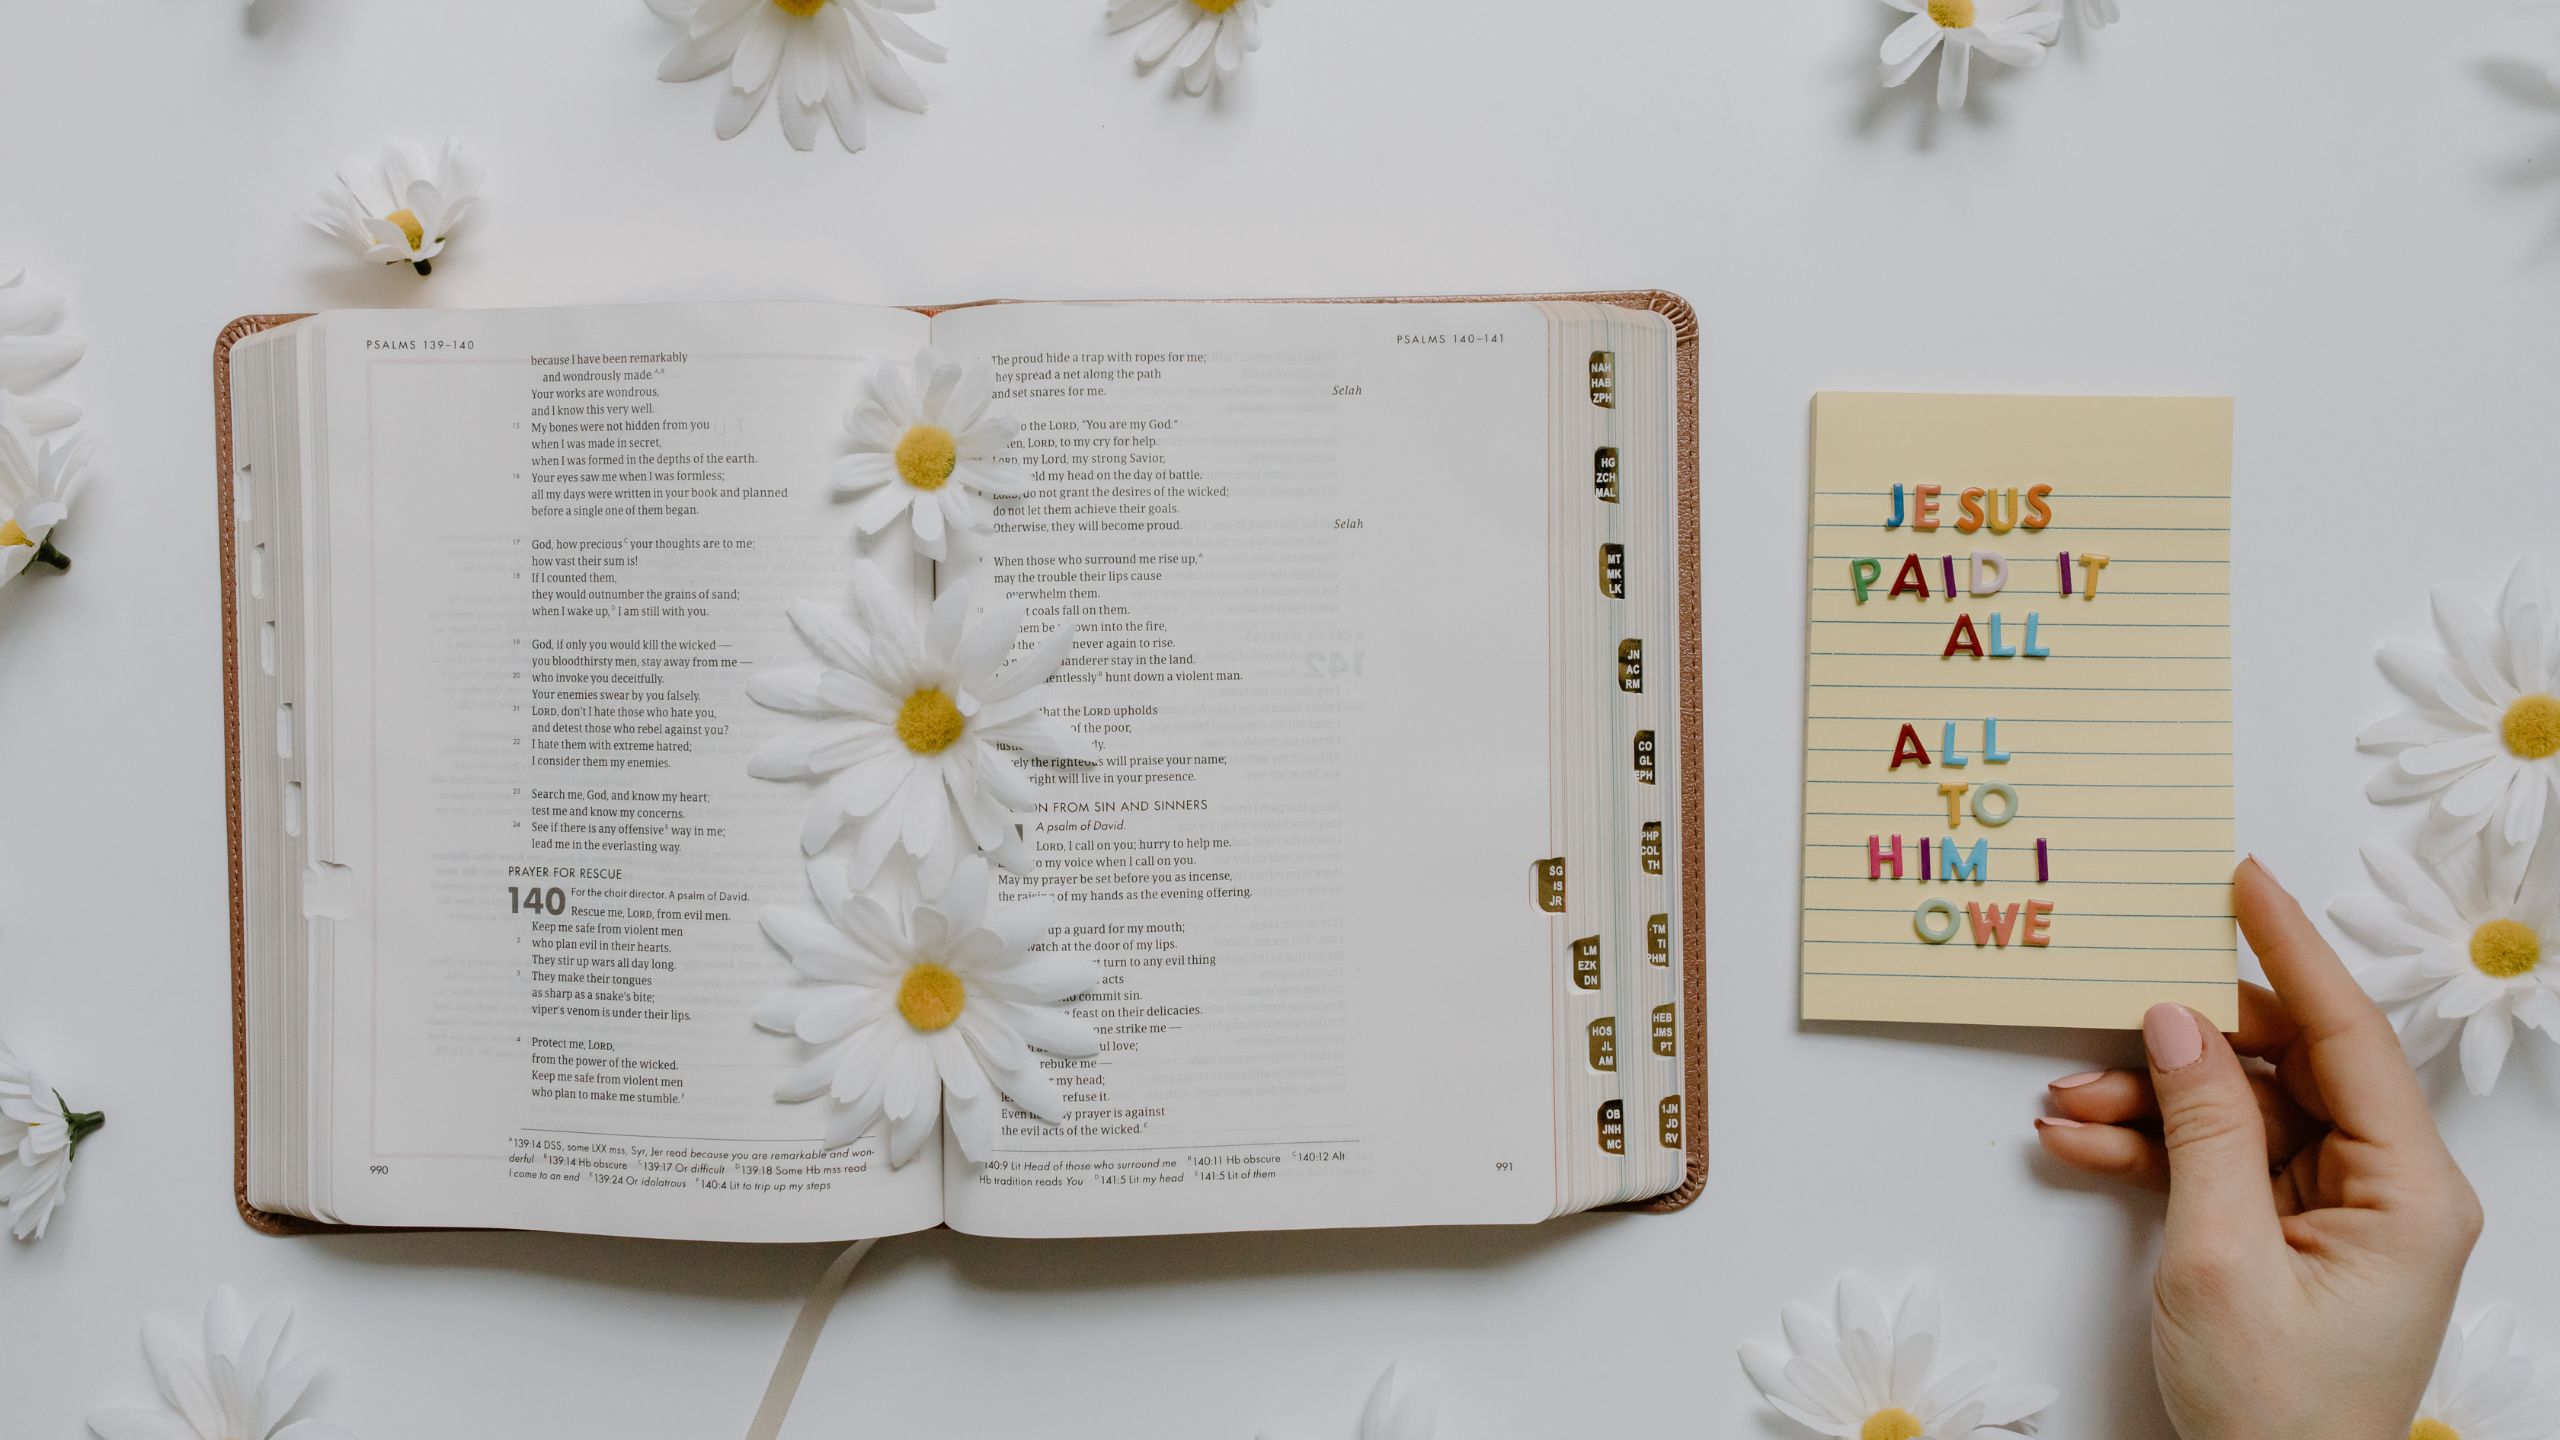 PSALMS 139–140
because I have been remarkably
and wondrously made.A,B
Your works are wondrous,
and I know this very well.
15 My bones were not hidden from you
when I was made in secret,
when I was formed in the depths of the earth.
16 Your eyes saw me when I was formless;
all my days were written in your book and planned
before a single one of them began.
17 God, how preciousC your thoughts are to me;
how vast their sum is!
18 If I counted them,
they would outnumber the grains of sand;
when I wake up,D I am still with you.
19 God, if only you would kill the wicked —
you bloodthirsty men, stay away from me —
20 who invoke you deceitfully.
Your enemies swear by you falsely.
21 LORD, don't I hate those who hate you,
and detest those who rebel against you?
22 I hate them with extreme hatred;
I consider them my enemies.
23 Search me, God, and know my heart;
test me and know my concerns.
24 See if there is any offensiveE way in me;
lead me in the everlasting way.
PRAYER FOR RESCUE
140 For the choir director. A psalm of David.
Rescue me, LORD, from evil men.
Keep me safe from violent men
2 who plan evil in their hearts.
They stir up wars all day long.
3 They make their tongues
as sharp as a snake's bite;
viper's venom is under their lips.
4 Protect me, LORD,
from the power of the wicked.
Keep me safe from violent men
who plan to make me stumble.F
A139:14 DSS, some LXX mss, Syr, Jer read because you are remarkable and won-
derful B139:14 Hb obscure C139:17 Or difficult D139:18 Some Hb mss read
I come to an end E139:24 Or idolatrous F140:4 Lit to trip up my steps
990
PSALMS 140–141
The proud hide a trap with ropes for me;
hey spread a net along the path
and set snares for me. Selah
o the LORD, "You are my God."
LORD, to my cry for help.
LORD, my Lord, my strong Savior,
my head on the day of battle.
LORD, do not grant the desires of the wicked;
do not let them achieve their goals.
Otherwise, they will become proud. Selah
9 When those who surround me rise up,A
may the trouble their lips cause
overwhelm them.
10 coals fall on them.
be into the fire,
the never again to rise.
stay in the land.
hunt down a violent man.
that the LORD upholds
of the poor,
the righteous will praise your name;
right will live in your presence.
FROM SIN AND SINNERS
A psalm of David.
LORD, I call on you; hurry to help me.
to my voice when I call on you.
May my prayer be set before you as incense,
the of my hands as the evening offering.
up a guard for my mouth;
watch at the door of my lips.
turn to any evil thing
acts
commit sin.
feast on their delicacies.
one strike me —
love;
rebuke me —
my head;
refuse it.
Even my prayer is against
the evil acts of the wicked.C
140:9 Lit Head of those who surround me B140:11 Hb obscure C140:12 Alt
Hb tradition reads You D141:5 Lit my head E141:5 Lit of them
991
NAH
HAB
ZPH
HG
ZCH
MAL
MT
MK
LK
JN
AC
RM
CO
GL
EPH
PHP
COL
TH
SG
IS
JR
TM
TI
PHM
LM
EZK
DN
HOS
JL
AM
HEB
JMS
PT
OB
JNH
MC
1JN
JD
RV
JESUS
PAID IT
ALL
ALL
TO
HIM I
OWE